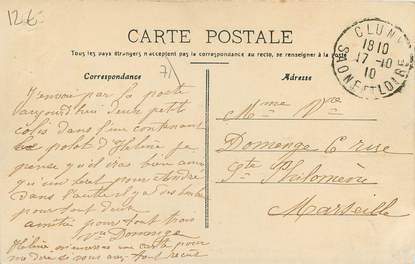 12€
71
CARTE POSTALE
Tous les pays étrangers n'acceptent pas la correspondance au recto, se renseigner à la poste
Correspondance
Adresse
CLUNY
18 10
17 -10
10
SAONE ET LOIRE
J'envoi par la poste
aujourd'hui deux petit
colis dans l'un contenant
le polot d'Hélène je
pense qu'il ira bien ainsi
qu'un pour André
dans l'autre il y a des
pour tout deux
amitié pour tout trois
Vve Domenge
Hélène une carte pour
me dire si vous avez tout reçus
Mme Vve
Domenge 6 rue
Ste Philomène
Marseille